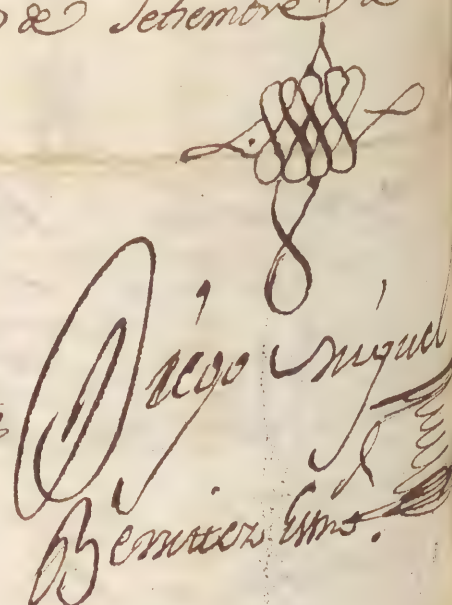 de Setiembre de
Diego Miguel
Benittez Essno.